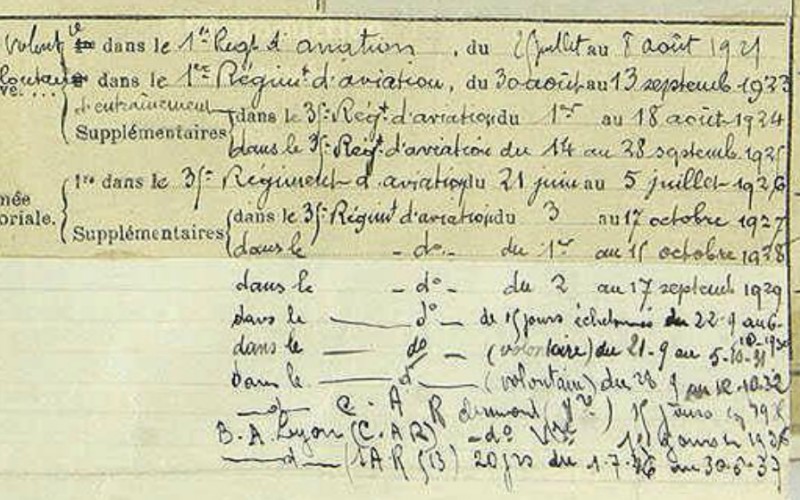 volont re dans le 1er Regt d'aviation, du 2 juillet au 8 août 1921
dans le 1er Régimt d'aviation, du 30 août au 13 septemb 1923
d'entraînement
Supplémentaires dans le 35e Régt d'aviation du 1er au 18 août 1924
dans le 35e Régt d'aviation du 14 au 28 septemb 1925
née 1re dans le 35e Régiment d'aviation du 21 juin au 5 juillet 1926
oriale. dans le 35e Régimt d'aviation du 3 au 17 octobre 1927
Supplémentaires dans le - do - du 1er au 15 octobre 1928
dans le - do - du 2 au 17 septemb 1929
dans le do de 15 jours échelonnés du 22-9 au 6-10-1930
dans le do (volontaire) du 21-9 au 5-10-31
Dans le d (volontair) du 28 9 au 12-10-32
d C. A. R 15 jours
B. A. Lyon (C.A.R) - do jours 1936
d 20 jrs du 1-7-36 au 30-6-37